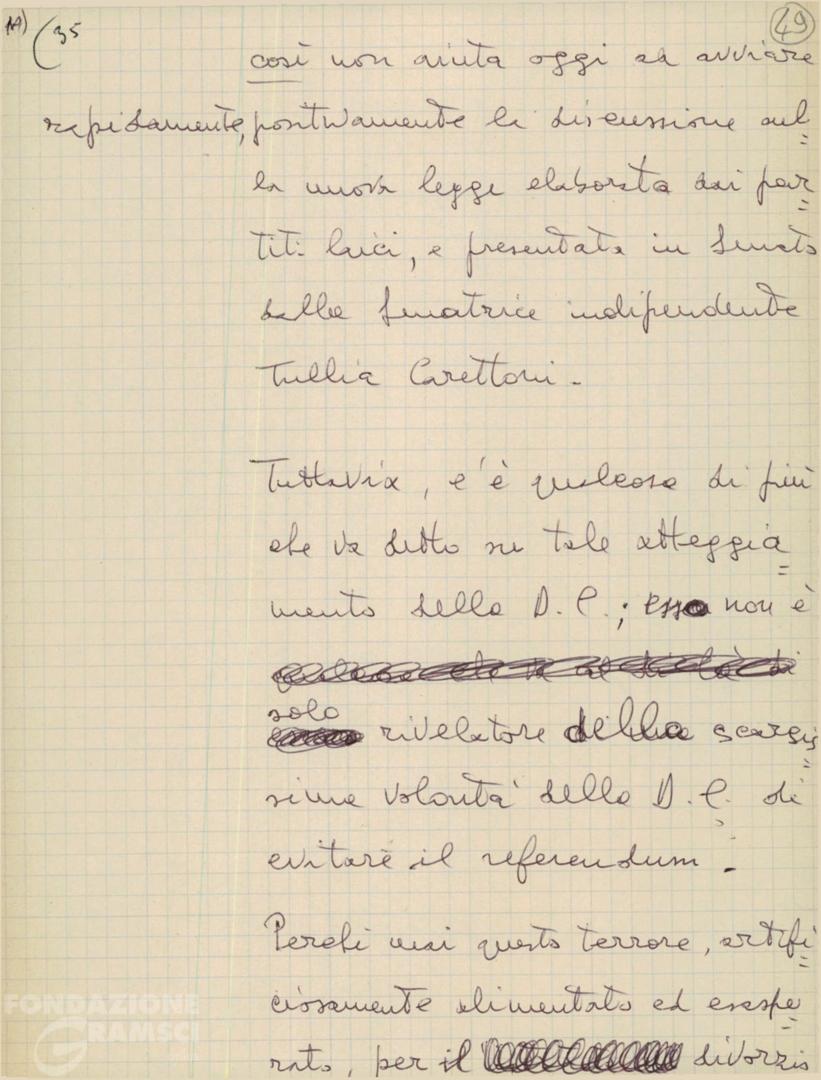 1A) (35 49
così non aiuta oggi ad avviare
rapidamente, positivamente la discussione sul=
la nuova legge elaborata dai par=
titi laici, e presentata in Senato
dalla Senatrice indipendente
Tullia Carettoni.
Tuttavia, c'è qualcosa di più
che va detto su tale atteggia=
mento della D.C.; esso non è
solo
rivelatore della scarsis=
sima volontà della D.C. di
evitare il referendum.
Perché mai questo terrore, artifi=
ciosamente alimentato ed esaspe=
rato, per il divorzio
FONDAZIONE
GRAMSCI